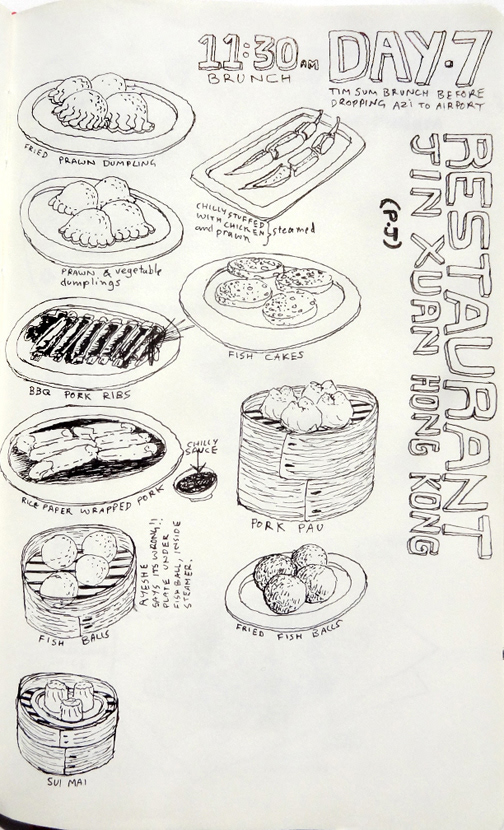 11:30AM
BRUNCH
DAY.7
TIM SUM BRUNCH BEFORE
DROPPING AZI TO AIRPORT
RESTAURANT
JIN XUAN HONG KONG
(P.J)
FRIED PRAWN DUMPLING
CHILLY STUFFED
WITH CHICKEN
and prawn
steamed
PRAWN & vegetable
dumplings
FISH CAKES
BBQ PORK RIBS
CHILLY
SAUCE
RICE PAPER WRAPPED PORK
PORK PAU
AYESHE
SAYS ITS WRONG!!
PLATE UNDER
FISH BALL, INSIDE
STEAMER.
FISH BALLS
FRIED FISH BALLS
SUI MAI